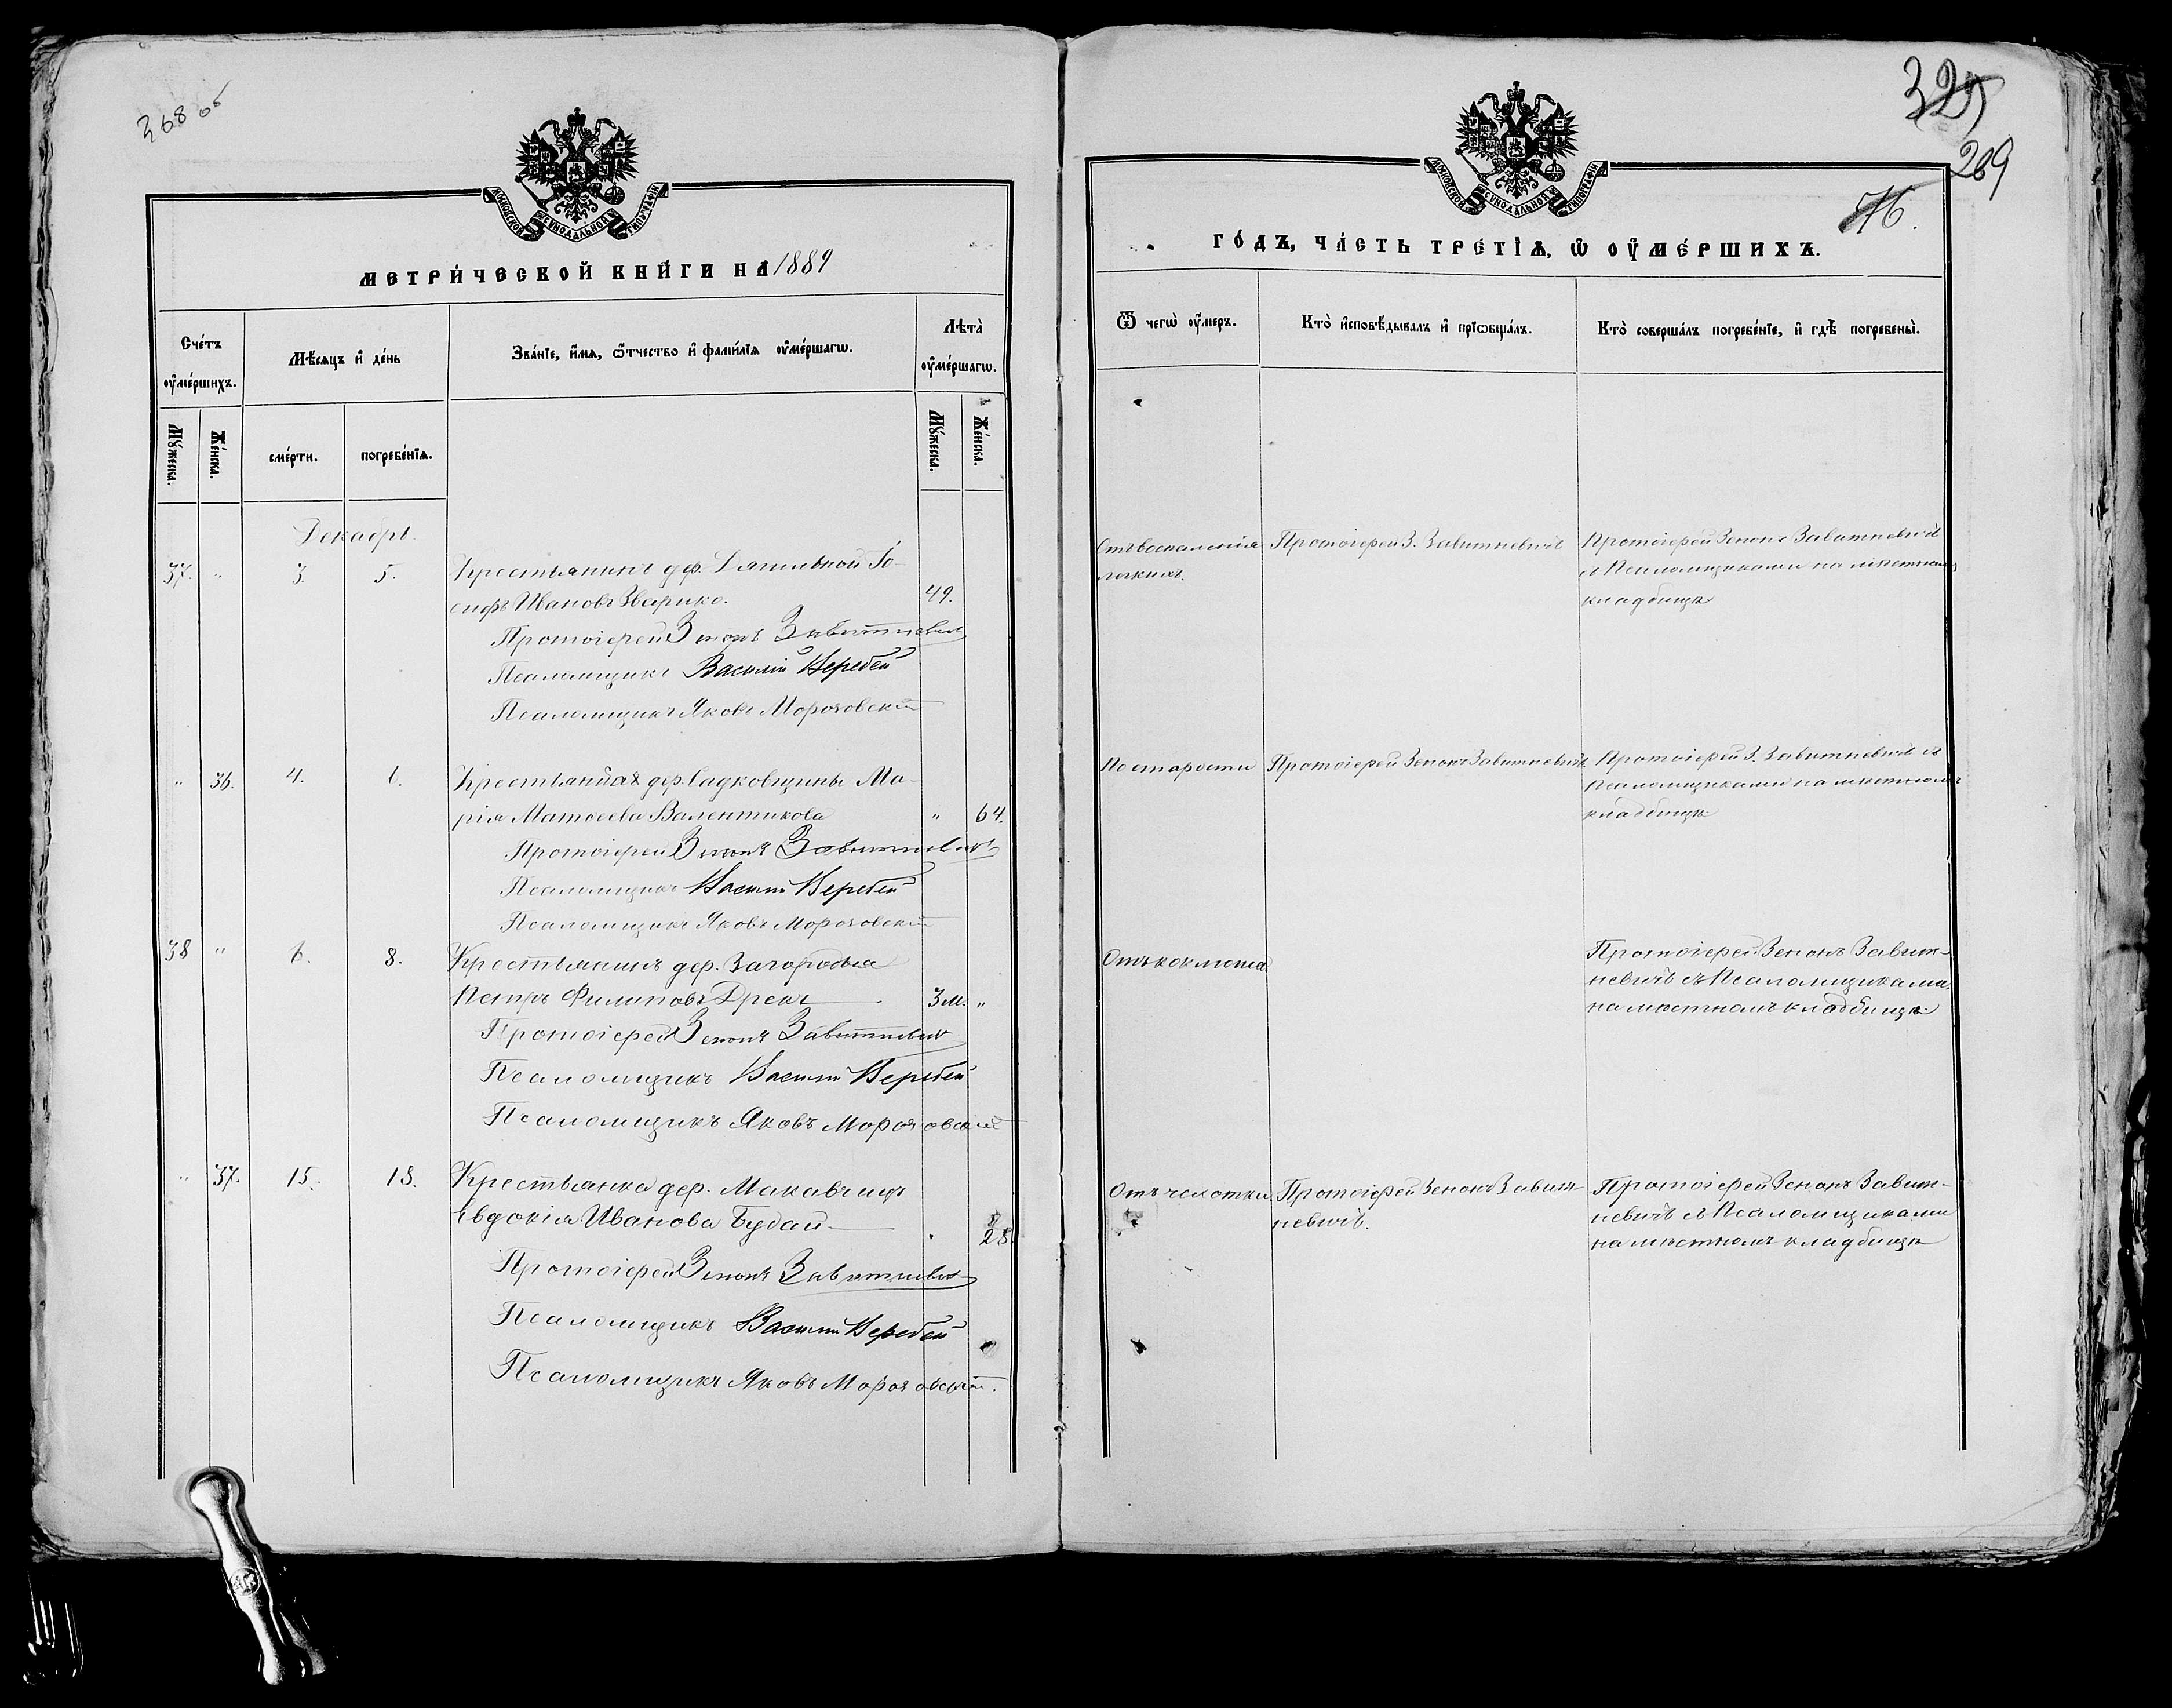 368 об
МОСКОВСКОЙ СѴНОДАЛЬНОЙ ТИПОГРАФІИ
МЕТРИ́ЧЕСКОЙ КНИ́ГИ НА 1889
Сче́тъ ᲂу҆ме́ршихъ.
Мѣ́сяцъ и҆ де́нь
Зва́нїе, и҆́мѧ, ѻ҆́тчество и҆ фамі́лїѧ ᲂу҆ме́ршагѡ.
Лѣта̀ ᲂу҆ме́ршагѡ.
Мꙋ́жеска.
Же́нска.
сме́рти.
погребе́нїѧ.
Мꙋ́жеска.
Же́нска.
Декабрь.
37. " 3. 5. Крестьянинъ дер. Іо-
сифъ Ивановъ Зварико. 49.
Протоіерей Зенонъ Завитневичъ
Псаломщикъ Василій Веребей
Псаломщикъ Яковъ Морозовскій
" 36. 4. 6. Крестьянка дер. Садковщины Ма-
рія Матѳеева Валентикова " 64.
Протоіерей Зенонъ Завитневичъ
Псаломщикъ Василій Веребей
Псаломщикъ Яковъ Морозовскій
38 " 6. 8. Крестьянинъ дер. Загородья
Петръ Филиповъ Дрекъ 3 м. "
Протоіерей Зенонъ Завитневичъ
Псаломщикъ Василій Веребей
Псаломщикъ Яковъ Морозовскій
" 37. 15. 18. Крестьянка дер. Макавчицъ
Евдокія Иванова Будай 28.
Протоіерей Зенонъ Завитневичъ
Псаломщикъ Василій Веребей
Псаломщикъ Яковъ Морозовскій.
325
269
76.
МОСКОВСКОЙ СѴНОДАЛЬНОЙ ТИПОГРАФІИ
ГО́ДЪ, ЧА́СТЬ ТРЕ́ТЇѦ, Ѽ ОУ҆МЕ́РШИХЪ.
Ѿ чегѡ̀ ᲂу҆́меръ.
Кто̀ и҆сповѣ́дывалъ и҆ прїѡбща́лъ.
Кто̀ соверша́лъ погребе́нїе, и҆ гдѣ̀ погребены̀.
Отъ воспаленія
легкихъ.
Протоіерей З. Завитневичъ
Протоіерей Зенонъ Завитневичъ
съ Псаломщиками на мѣстномъ
кладбищѣ
По старости
Протоіерей Зенонъ Завитневичъ
Протоіерей З. Завитневичъ съ
Псаломщиками на мѣстномъ
кладбищѣ
Отъ коклюша
Протоіерей Зенонъ Завит-
невичъ съ Псаломщиками
на мѣстномъ кладбищѣ
Отъ чахотки
Протоіерей Зенонъ Завит-
невичъ.
Протоіерей Зенонъ Завит-
невичъ съ Псаломщиками
на мѣстномъ кладбищѣ